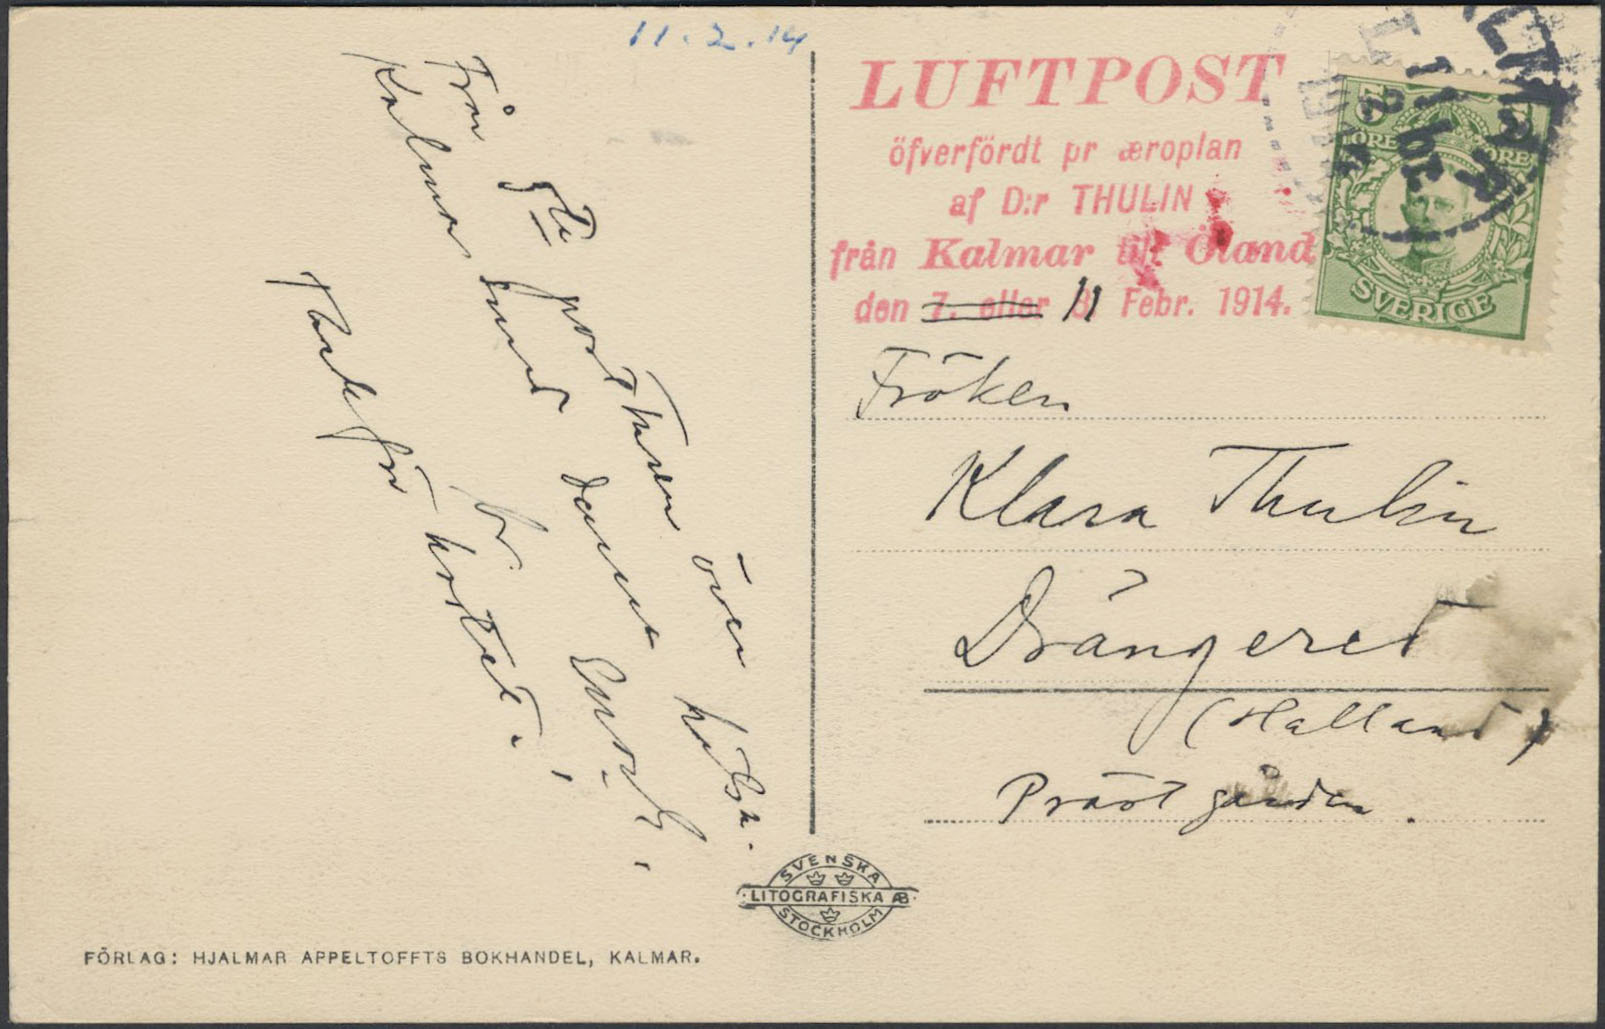 11.2.14
Från 5te postturen över
Kalmar sund
Tack för kortet.
LUFTPOST
öfverfördt pr æroplan
af D:r THULIN
från Kalmar till Öland
den 7. eller 8. 11 Febr. 1914.
5
ÖRE ÖRE
SVERIGE
Fröken
Klara Thulin
Drängered
(Halland)
Prästgården.
SVENSKA
LITOGRAFISKA AB
STOCKHOLM
FÖRLAG: HJALMAR APPELTOFFTS BOKHANDEL, KALMAR.